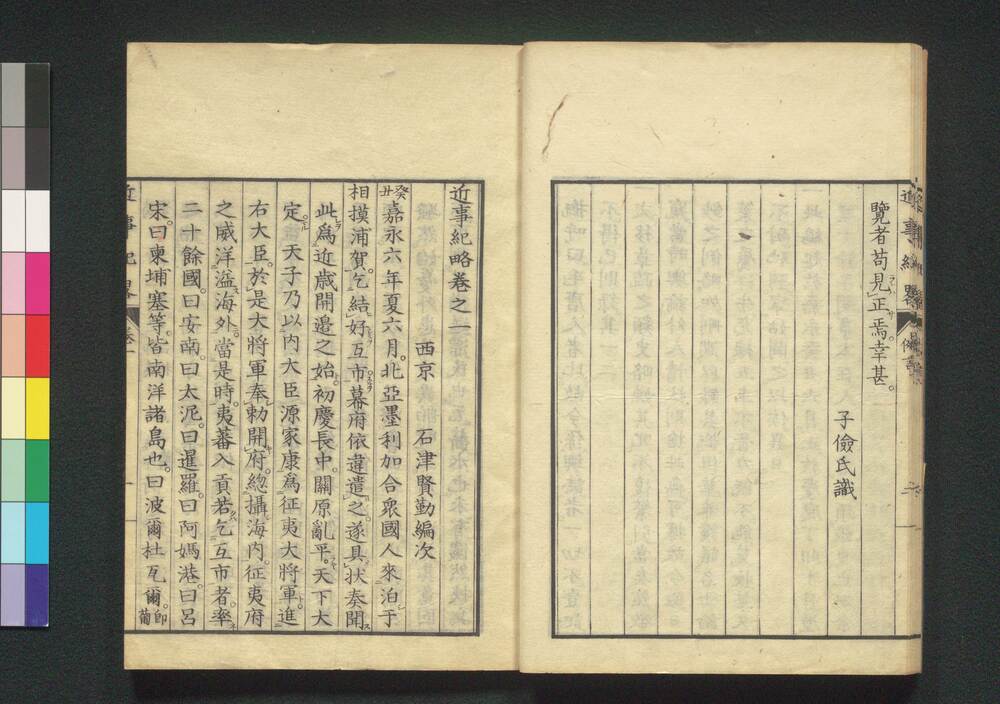 覽者苟見正焉幸甚。
子儉氏識
近事紀略卷之一
西京 石津賢勤編次
癸丑嘉永六年夏六月。北亞墨利加合衆國人來泊于
相摸浦賀。乞結好互市。幕府依違遣之。遂具狀奏聞
此爲近歲開邊之始。初慶長中。關原亂平。天下大
定。天子乃以內大臣源家康爲征夷大將軍。進
右大臣。於是大將軍奉勅開府。總攝海內。征夷府
之威洋溢海外。當是時。夷蕃入貢若乞互市者。率
二十餘國。曰安南。曰太泥。曰暹羅。曰阿媽港。曰呂
宋。曰柬埔寨等。皆南洋諸島也。曰波爾杜瓦爾。卽葡
近事紀畧 卷一